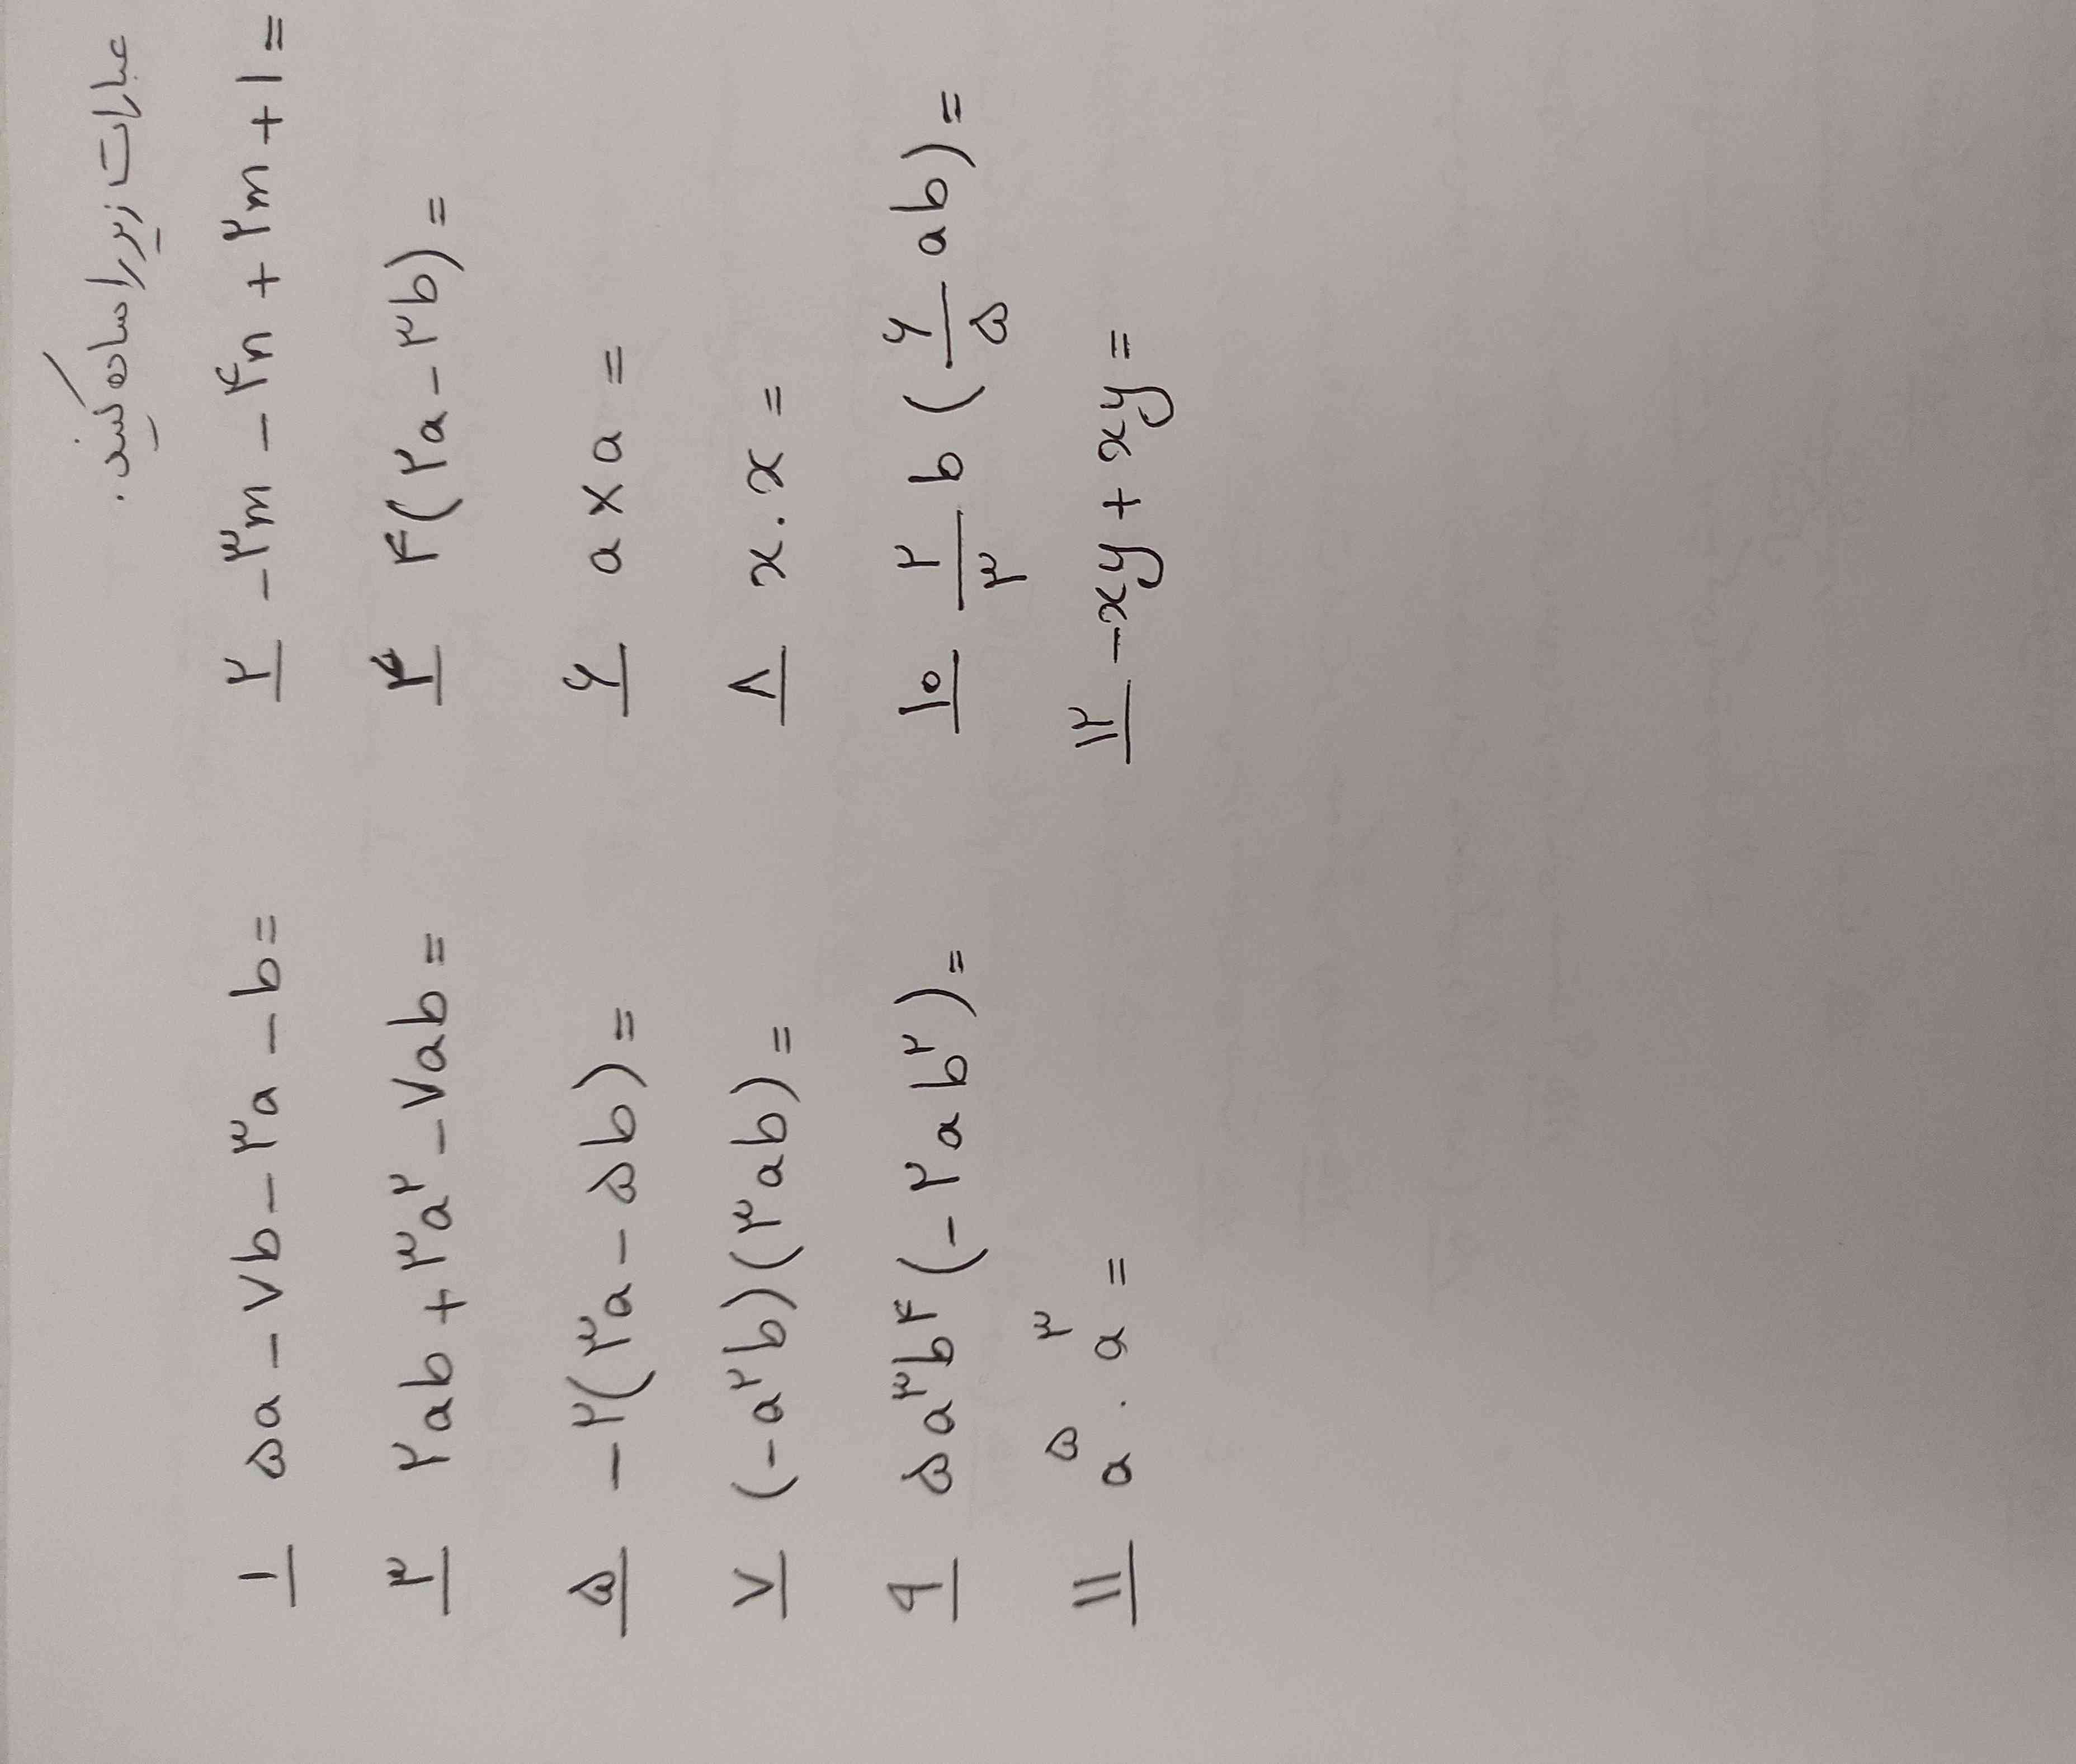 عبارات زیر را ساده کنید.
۱ ۵a - ۷b - ۳a - b =
۲ -۳m - ۴n + ۲m + ۱ =
۳ ۲ab + ۳a^۲ - ۷ab =
۴ ۴(۲a - ۳b) =
۵ -۲(۳a - ۵b) =
۶ a × a =
۷ (-a^۲b)(۳ab) =
۸ x . x =
۹ ۵a^۳b^۴(-۲ab^۲) =
۱۰ ۲/۳ b (۶/۵ ab) =
۱۱ a^۵ . a^۳ =
۱۲ -xy + xy =